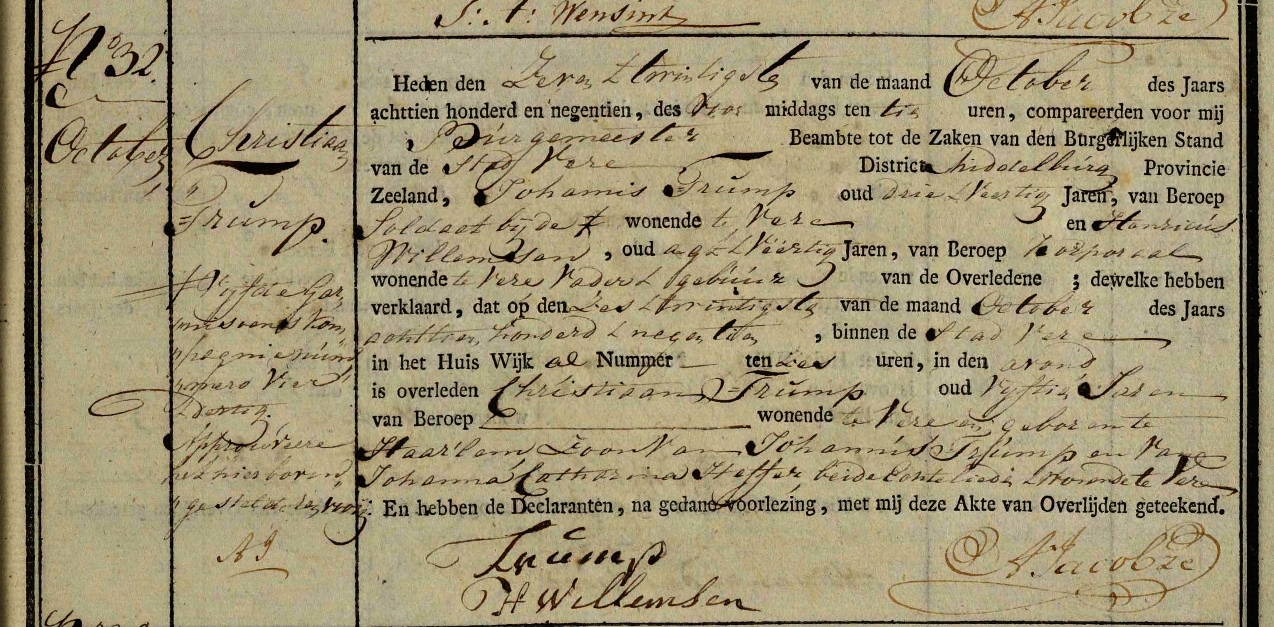 S: A: Wensink
A Jacobze
No 32.
October
Christiaan
Trump.
Heden den Zeven & twintigste van de maand October des Jaars
achttien honderd en negentien, des voor middags ten tien uren, compareerden voor mij
Burgemeester Beambte tot de Zaken van den Burgerlijken Stand
van de Stad Vere District Middelburg Provincie
Zeeland, Johannis Trump oud drie & Veertig Jaren, van Beroep
Soldaat bij de ‡ wonende te Vere en Henricus
Willemsen, oud agt & Veertig Jaren, van Beroep korporaal
wonende te Vere Vader & gebuur van de Overledene ; dewelke hebben
verklaard, dat op den Zes & twintigste van de maand October des Jaars
achttien honderd & negentien, binnen de Stad Vere
in het Huis Wijk al Nummer ten Zes uren, in den avond
is overleden Christiaan Trump oud Vyftig Jaren
van Beroep wonende te Vere en geboren te
Haarlem Zoon Van Johannis Trump en Van
Johanna Catharina Heffer, beide Echtelieden & wonende te Vere
En hebben de Declaranten, na gedane voorlezing, met mij deze Akte van Overlijden geteekend.
‡ Vyfde Gar
nisoens kom
pagnie num
mero Vier
& dertig.
Approuveere
het hierboven
gestelde renvooij
AJ
Trump
H Willemsen
A Jacobze